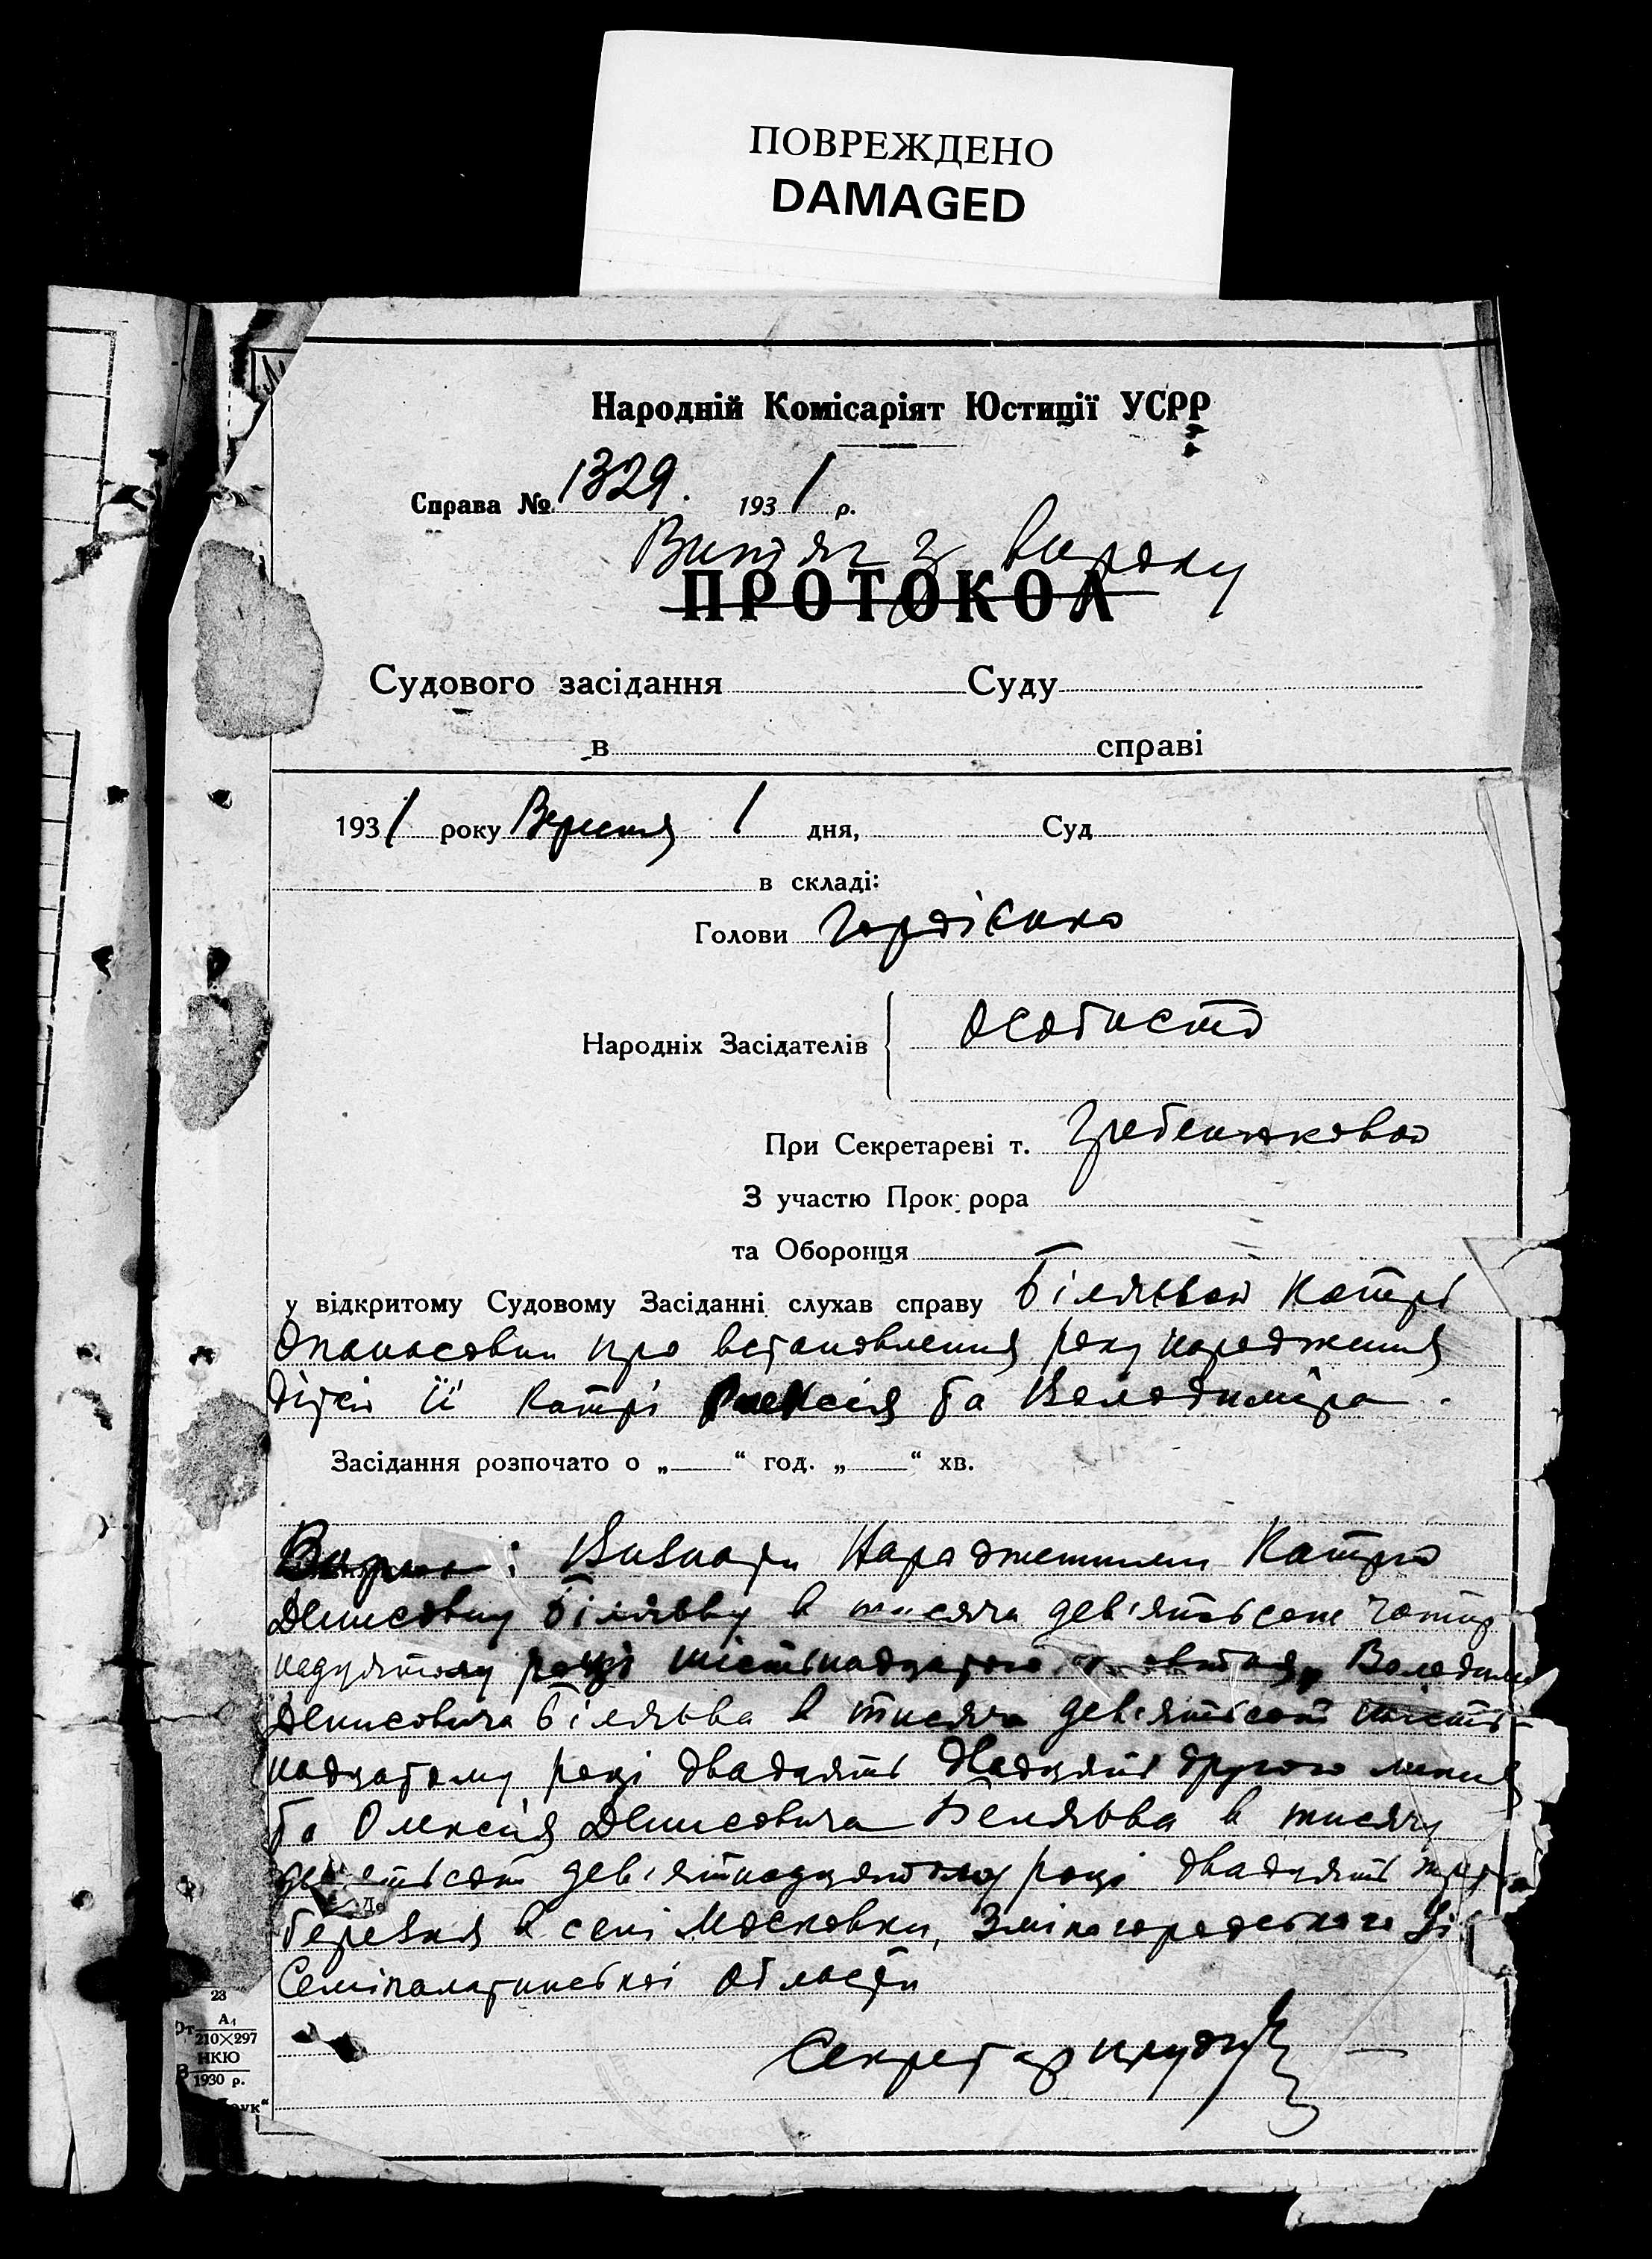 ПОВРЕЖДЕНО
DAMAGED
Народній Комісаріят Юстиції УСРР
Справа № 1329. 1931 р.
Витяг з вироку
ПРОТОКОЛ
Судового засідання Суду
в справі
1931 року Вересня 1 дня, Суд
в складі:
Голови Гордієнко
Народніх Засідателів Особисто
При Секретареві т.
З участю Прок рора
та Оборонця
у відкритому Судовому Засіданні слухав справу Біляєвой Катрі
Опанасовни про встановлення року народження
дітей її Катрі Олексія та Володиміра.
Засідання розпочато о „ “ год. „ “ хв.
Вирок: Визнати Народженними Катрю
Денисовну Біляєву в тисяча девʼятьсот чотир
надцятому році шістнадцятого Володими
Денисовича Біляєва в тисяча девʼятьсот шіст
надцатому році двадцять двадцять другого липня
та Олексія Денисовича Беляєва в тисячу
девʼятьсот девʼятнадцятому році двадцять трет
березня в селі Московки, Зміногородського
Семіпалатинської області
Секретар
23
А4
210×297
НКЮ
1930 р.